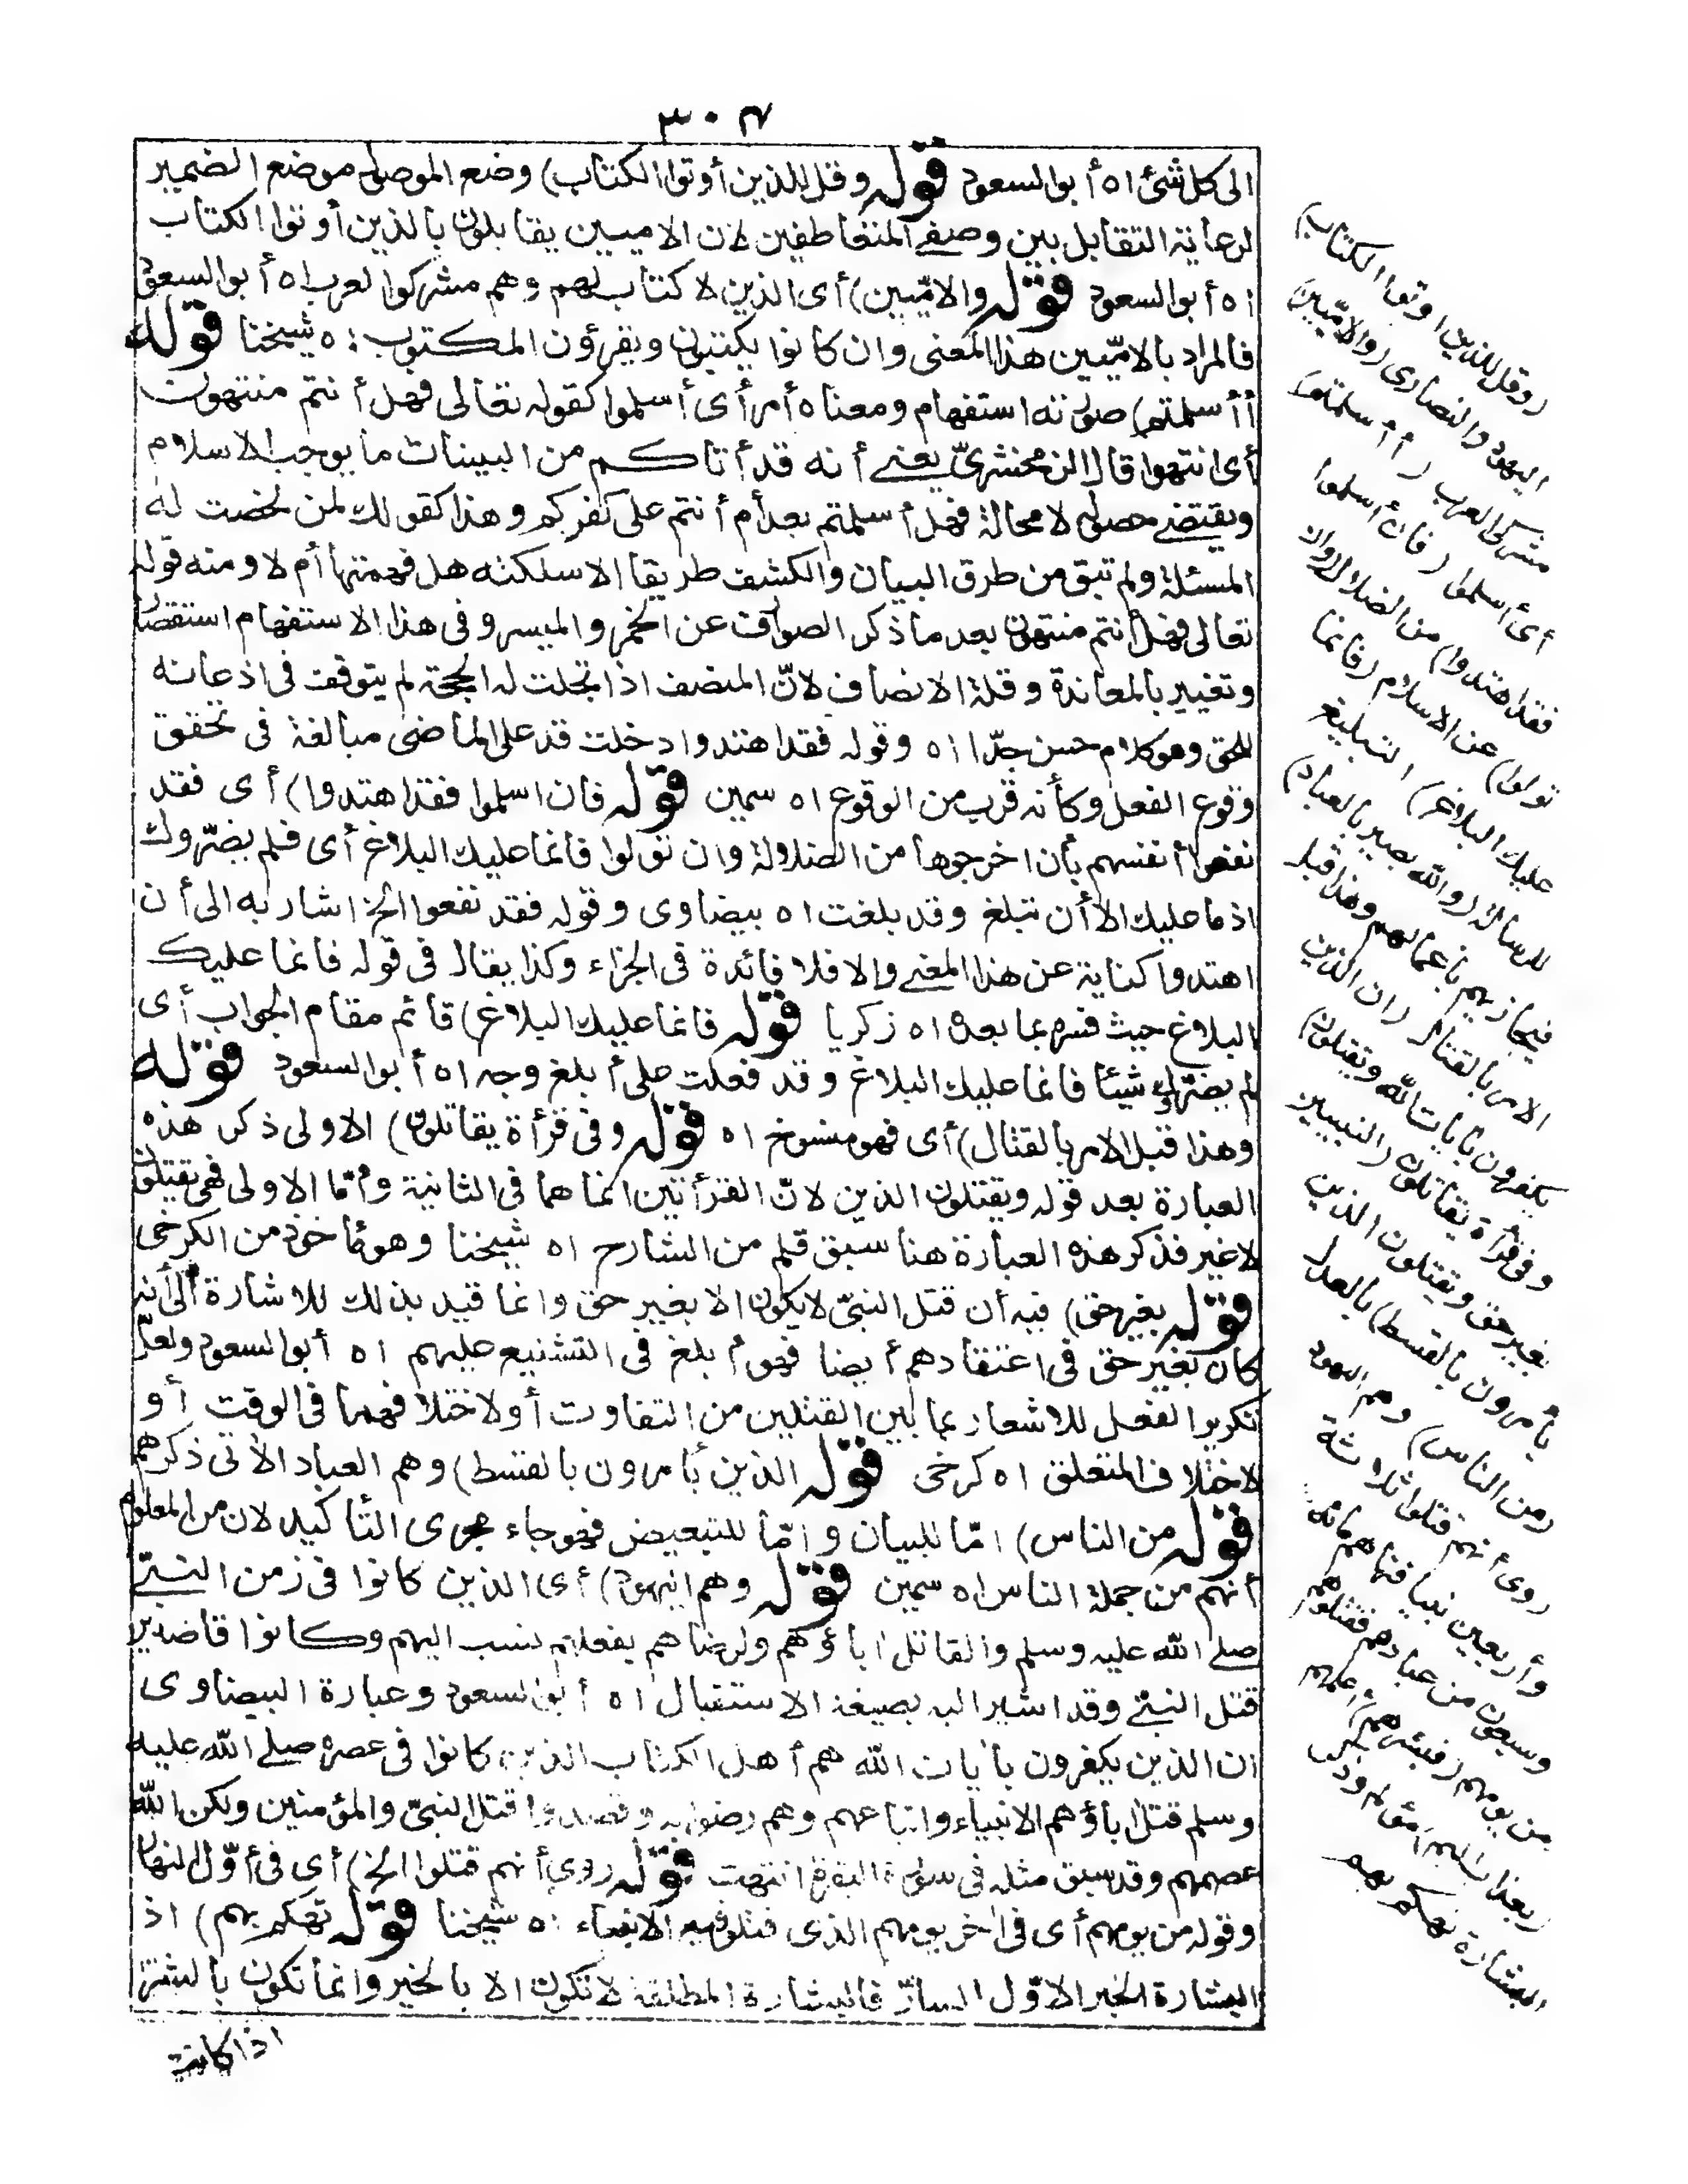 ٣٠٣
الى كل شئ اه أبوالسعود قوله وقل للذين أوتوا الكتاب) وضع الموصول موضع الضمير
لرعاية التقابل بين وصفى المتعاطفين لان الاميين يقابلون بالذين أوتوا الكتاب
اه أبوالسعود قوله والامّيين) أى الذين لا كتاب لهم وهم مشركوا لعرب اه أبوالسعود
فالمراد بالامّيين هذا المعنى وان كانوا يكتبون ويقرؤن المكتوب اه شيخنا قوله
أأسلمتم) صورته استفهام ومعناه أمر أى أسلموا كقوله تعالى فهل أنتم منتهون
أى انتهوا قال الزمخشرىّ يعنى أنه قد أتاكم من البينات ما يوجب الاسلام
ويقتضى حصوله لا محالة فهل أسلمتم بعد أم أنتم على كفركم وهذا كقولك لمن لخصت له
المسئلة ولم تبق من طرق البيان والكشف طريقا الا سلكته هل فهمتها أم لا ومنه قوله
تعالى فهل أنتم منتهون بعد ما ذكر الصوارف عن الخمر والميسر وفى هذا الاستفهام استقصار
وتغيير بالمعاندة وقلة الانصاف لانّ المنصف اذا تجلت له الحجة لم يتوقف فى اذعانه
للحق وهو كلام حسن جدّا اه وقوله فقد اهتدوا دخلت قد على الماضى مبالغة فى تحقق
وقوع الفعل وكأنه قرب من الوقوع اه سمين قوله فان اسلموا فقد اهتدوا) أى فقد
نفعوا أنفسهم بأن اخرجوها من الضلالة وان تولوا فانما عليك البلاغ أى فلم يضرّوك
اذ ما عليك الا أن تبلغ وقد بلغت اه بيضاوى وقوله فقد نفعوا الخ اشار به الى أن
اهتدوا كناية عن هذا المعنى والا فلا فائدة فى الجزاء وكذا يقال فى قوله فانما عليك
البلاغ حيث فسره بما بعده اه زكريا قوله فانما عليك البلاغ) قائم مقام الجواب أى
لم يضرّوك شيئا فانما عليك البلاغ وقد فعلت على أبلغ وجه اه أبوالسعود قوله
وهذا قبل الامر بالقتال) أى فهو منسوخ اه قوله وفى قرأة يقاتلون) الاولى ذكر هذه
العبارة بعد قوله ويقتلون الذين لانّ القرأتين انما هما فى الثانية وأمّا الاولى فهى يقتلون
لا غير فذكر هذه العبارة هنا سبق قلم من الشارح اه شيخنا وهو مأخوذ من الكرخى
قوله بغير حق) فيه أن قتل النبىّ لا يكون الا بغير حق وانما قيد بذلك للاشارة الى أنه
كان بغير حق فى اعتقادهم أيضا فهو أبلغ فى التشنيع عليهم اه أبوالسعود ولعلّ
تكرير الفعل للاشعار بما بين القتلين من التفاوت أو لاختلافهما فى الوقت أو
لاختلاف المتعلق اه كرخى قوله الذين يأمرون بالقسط) وهم العباد الآتى ذكرهم
قوله من الناس) امّا للبيان وامّا للتبعيض فهو جاء مجرى التأكيد لان من المعلوم
أنهم من جملة الناس اه سمين قوله وهم اليهود) أى الذين كانوا فى زمن النبىّ
صلى الله عليه وسلم والقاتل اباؤهم ولرضاهم بفعلهم نسب اليهم وكانوا قاصدين
قتل النبىّ وقد اشير اليه بصيغة الاستقبال اه أبوالسعود وعبارة البيضاوى
ان الذين يكفرون بآيات الله هم أهل الكتاب الذين كانوا فى عصره صلى الله عليه
وسلم قتل اباؤهم الانبياء واتباعهم وهم رضوا به وقصدوا قتل النبىّ والمؤمنين ولكن الله
عصمهم وقد سبق مثله فى سورة البقرة انتهت قوله روى أنهم قتلوا الخ) أى فى أوّل النهار
وقوله من يومهم أى فى آخر يومهم الذى قتلوا فيه الانبياء اه شيخنا قوله تهكم بهم) اذ
البشارة الخبر الاوّل السارّ فالبشارة المطلقة لا تكون الا بالخير وانما تكون بالشرّ
اذا كانت
(وقل للذين اوتوا الكتاب)
اليهود والنصارى (والامّيين)
مشركى العرب (أأسلمتم)
أى أسلموا (فان أسلموا
فقد اهتدوا) من الضلال (وان
تولوا) عن الاسلام (فانما
عليك البلاغ) التبليغ
للرسالة (والله بصير بالعباد)
فيجازيهم باعمالهم وهذا قبل
الامر بالقتال (ان الذين
يكفرون بآيات الله ويقتلون)
وفى قرأة يقاتلون (النبيين
بغير حق ويقتلون الذين
يأمرون بالقسط) بالعدل
(من الناس) وهم اليهود
روى أنهم قتلوا ثلاثة
وأربعين نبيا فنهاهم مائة
وسبعون من عبادهم فقتلوهم
من يومهم (فبشرهم) أعلمهم
(بعذاب أليم) مؤلم وذكر
البشارة تهكم بهم